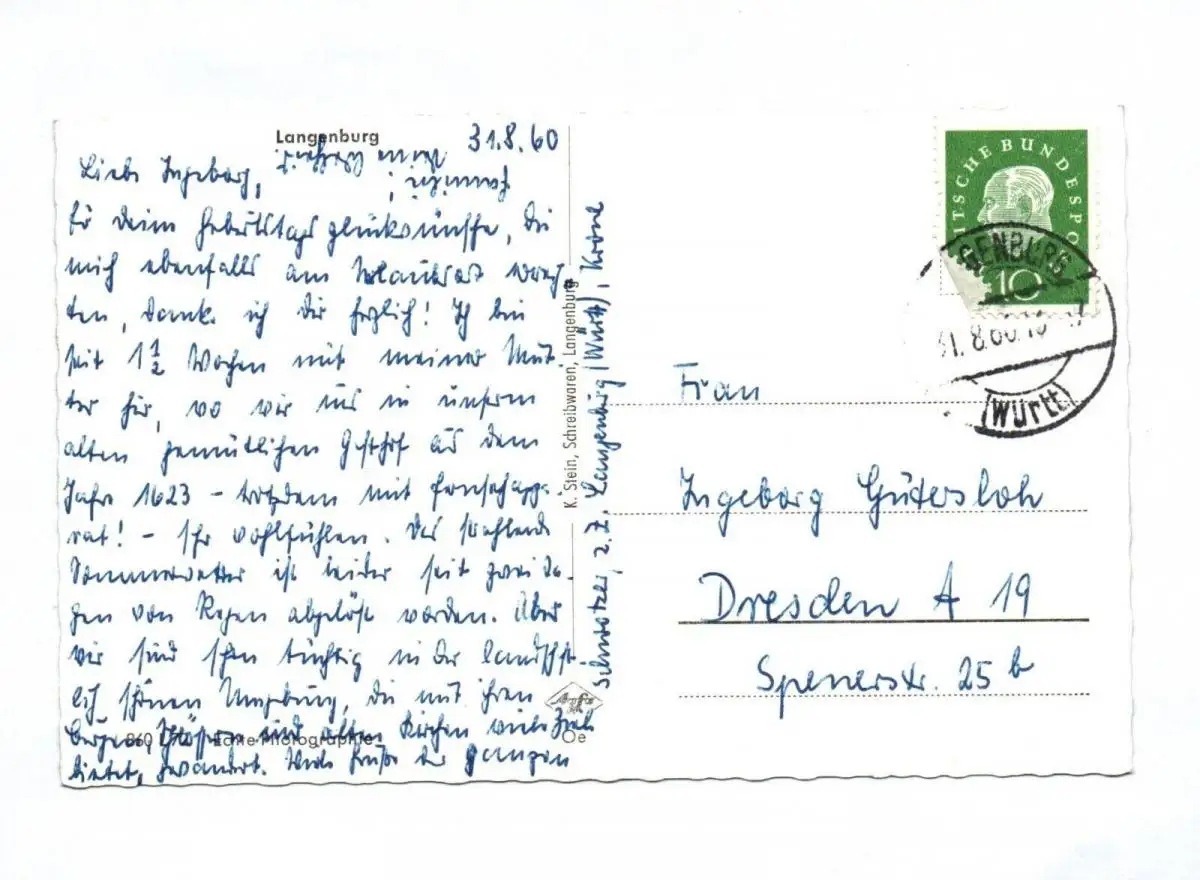 Langenburg
31.8.60
Liebe Ingeborg,
für deine Geburtstagsglückwünsche, die
mich ebenfalls am Urlaubsort erreich-
ten, danke ich dir herzlich! Ich bin
seit 1 1/2 Wochen mit meiner Mut-
ter hier, wo wir uns in unserm
alten gemütlichen Gasthof aus dem
Jahre 1623 - trotzdem mit Fernsehappa-
rat! - sehr wohlfühlen. Das strahlende
Sommerwetter ist leider seit zwei Ta-
gen von Regen abgelöst worden. Aber
wir sind schon tüchtig in der landschaft-
lich schönen Umgebung, die mit ihren
Burgen, Schlössern und alten Kirchen viele Ziele
bietet, gewandert. Viele Grüße der ganzen
Familie!
Deine
860 Echte Photographie
K. Stein, Schreibwaren, Langenburg
Agfa
Oe
z. Z. Langenburg (Württ), Krone
DEUTSCHE BUNDESPO
10
GENBURG
31.8.60
(Württ)
Frau
Ingeborg Gütersloh
Dresden A 19
Spenerstr. 25 b